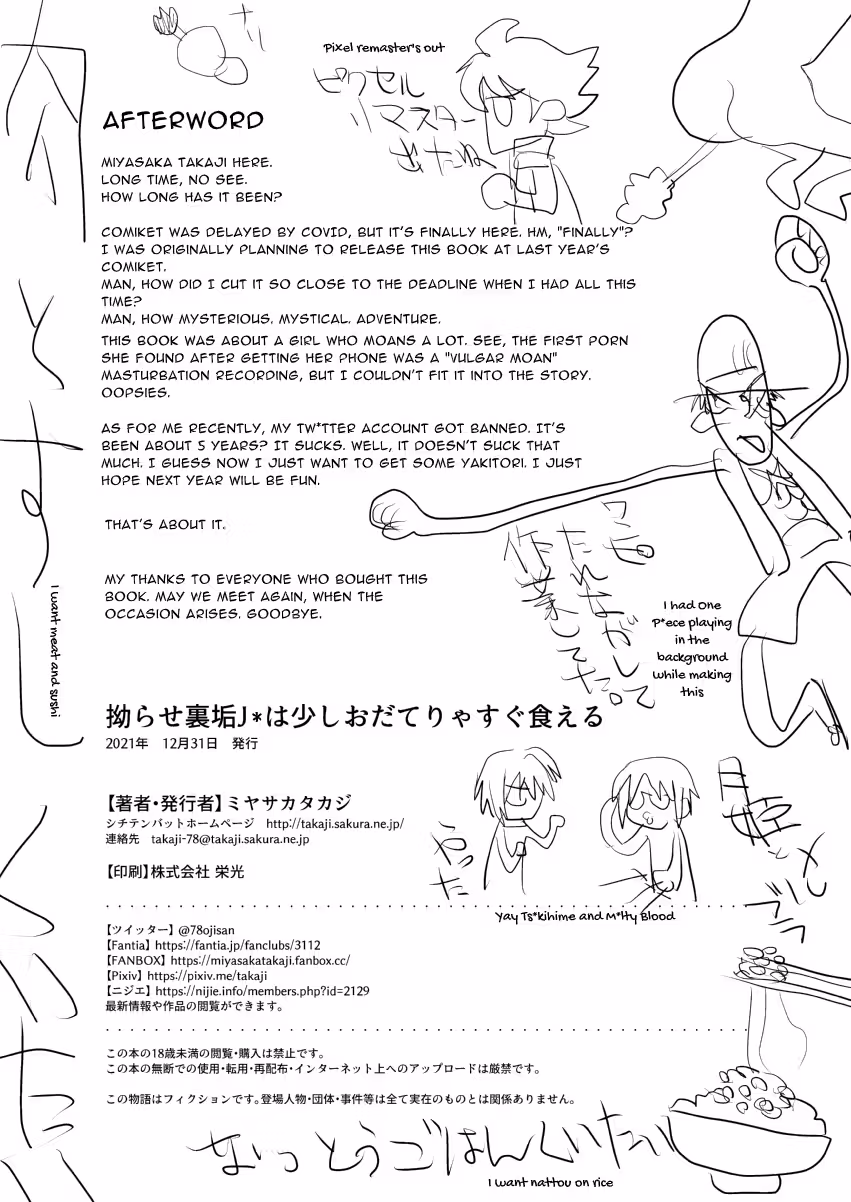 Pixel remaster's out
ピクセル
リマスター
出たね
AFTERWORD
MIYASAKA TAKAJI HERE.
LONG TIME, NO SEE.
HOW LONG HAS IT BEEN?
COMIKET WAS DELAYED BY COVID, BUT IT'S FINALLY HERE. HM, "FINALLY"?
I WAS ORIGINALLY PLANNING TO RELEASE THIS BOOK AT LAST YEAR'S
COMIKET.
MAN, HOW DID I CUT IT SO CLOSE TO THE DEADLINE WHEN I HAD ALL THIS
TIME?
MAN, HOW MYSTERIOUS. MYSTICAL. ADVENTURE.
THIS BOOK WAS ABOUT A GIRL WHO MOANS A LOT. SEE, THE FIRST PORN
SHE FOUND AFTER GETTING HER PHONE WAS A "VULGAR MOAN"
MASTURBATION RECORDING, BUT I COULDN'T FIT IT INTO THE STORY.
OOPSIES.
AS FOR ME RECENTLY, MY TW*TTER ACCOUNT GOT BANNED. IT'S
BEEN ABOUT 5 YEARS? IT SUCKS. WELL, IT DOESN'T SUCK THAT
MUCH. I GUESS NOW I JUST WANT TO GET SOME YAKITORI. I JUST
HOPE NEXT YEAR WILL BE FUN.
THAT'S ABOUT IT.
MY THANKS TO EVERYONE WHO BOUGHT THIS
BOOK. MAY WE MEET AGAIN, WHEN THE
OCCASION ARISES. GOODBYE.
I want meat and sushi
I had One
P*ece playing
in the
background
while making
this
拗らせ裏垢J*は少しおだてりゃすぐ食える
2021年 12月31日 発行
【著者・発行者】ミヤサカタカジ
シチテンバットホームページ http://takaji.sakura.ne.jp/
連絡先 takaji-78@takaji.sakura.ne.jp
【印刷】株式会社 栄光
やった
月姫と
メルブラ
Yay Ts*kihime and M*lty Blood
【ツイッター】@78ojisan
【Fantia】https://fantia.jp/fanclubs/3112
【FANBOX】https://miyasakatakaji.fanbox.cc/
【Pixiv】https://pixiv.me/takaji
【ニジエ】https://nijie.info/members.php?id=2129
最新情報や作品の閲覧ができます。
この本の18歳未満の閲覧・購入は禁止です。
この本の無断での使用・転用・再配布・インターネット上へのアップロードは厳禁です。
この物語はフィクションです。登場人物・団体・事件等は全て実在のものとは関係ありません。
なっとうごはんくいたい
I want nattou on rice